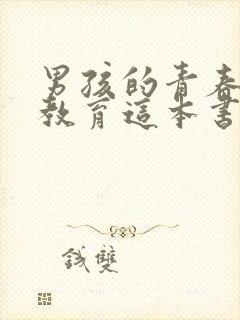 男孩的青春
教育這本書
钱雙